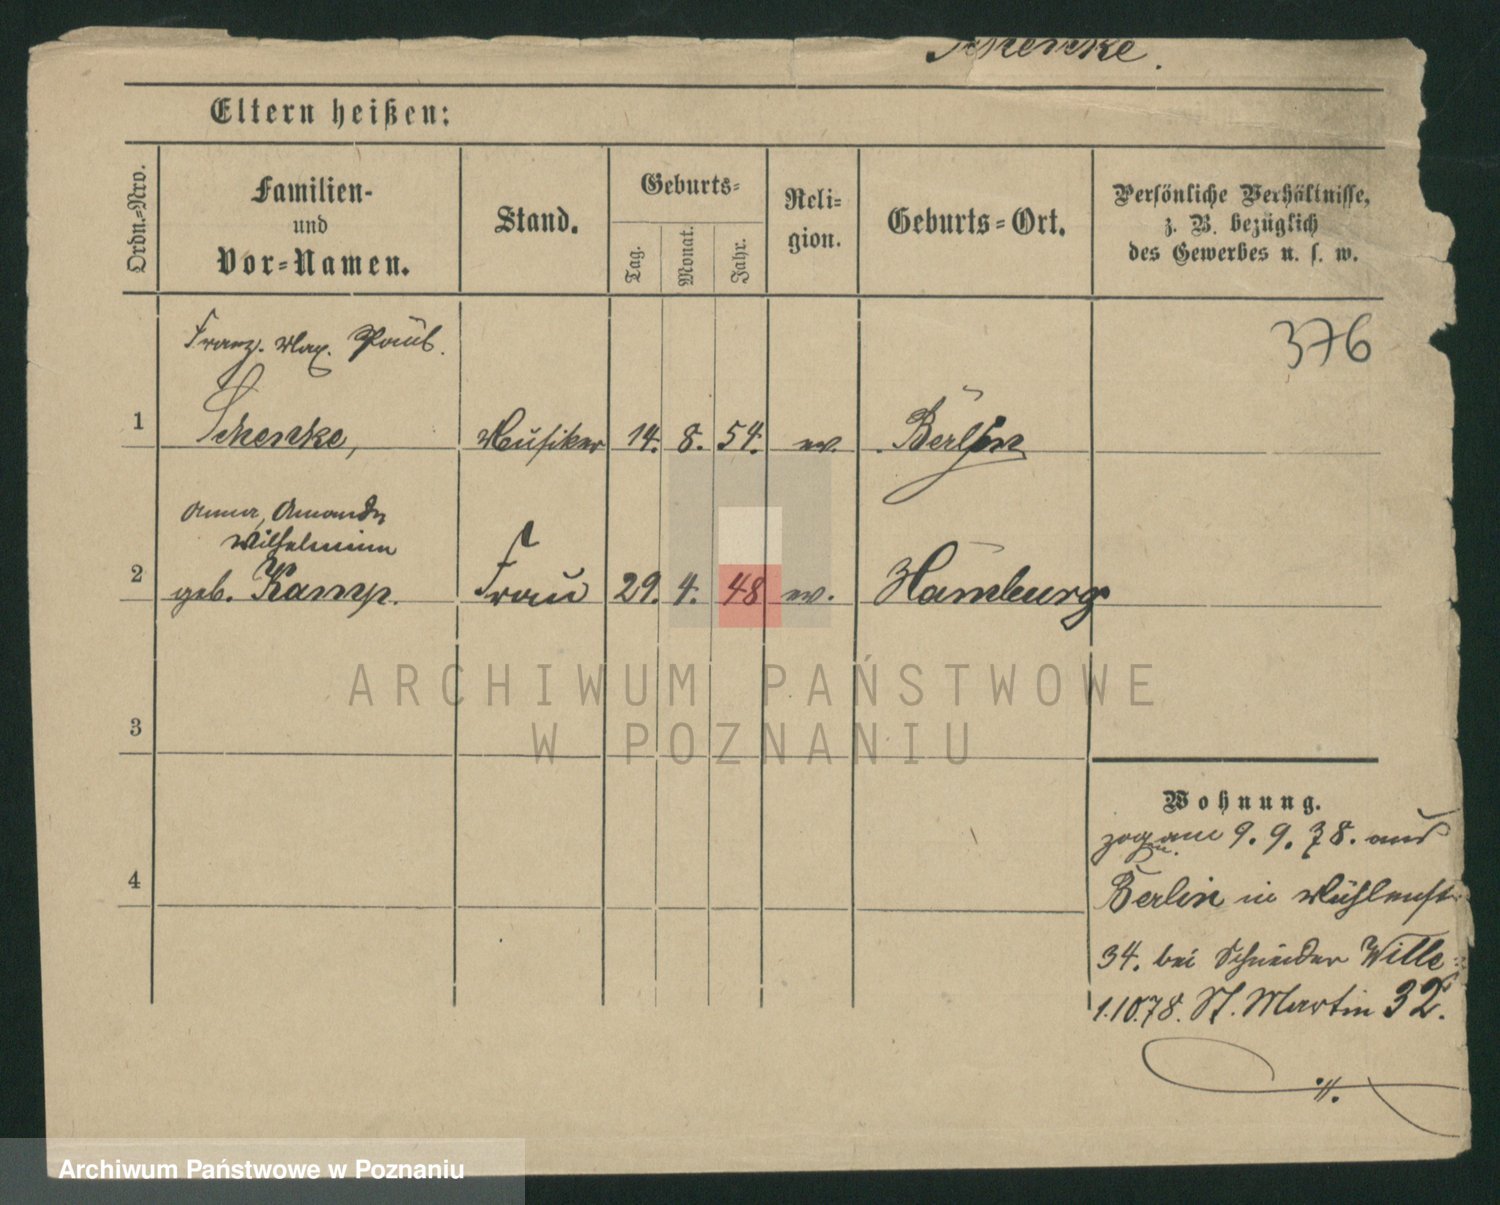 Schenke.
Eltern heißen:
Ordn.=Nro.
Familien-
und
Vor=Namen.
Stand.
Geburts=
Tag.
Monat.
Jahr.
Reli=
gion.
Geburts=Ort.
Persönliche Verhältnisse,
z. B. bezüglich
des Gewerbes u. s. w.
376
Franz. Max. Paul.
1 Schenke, Musiker 14. 8. 54. ev. Berlin
Anna, Amanda
Wilhelmine
2 geb. Kamp. Frau 29. 4. 48 ev. Hamburg
3
4
Wohnung.
zogen am 9. 9. 78. aus
Berlin in Mühlenstr
34. bei Schneider Wille
1.10.78. St. Martin 32.
ARCHIWUM PAŃSTWOWE
W POZNANIU
Archiwum Państwowe w Poznaniu